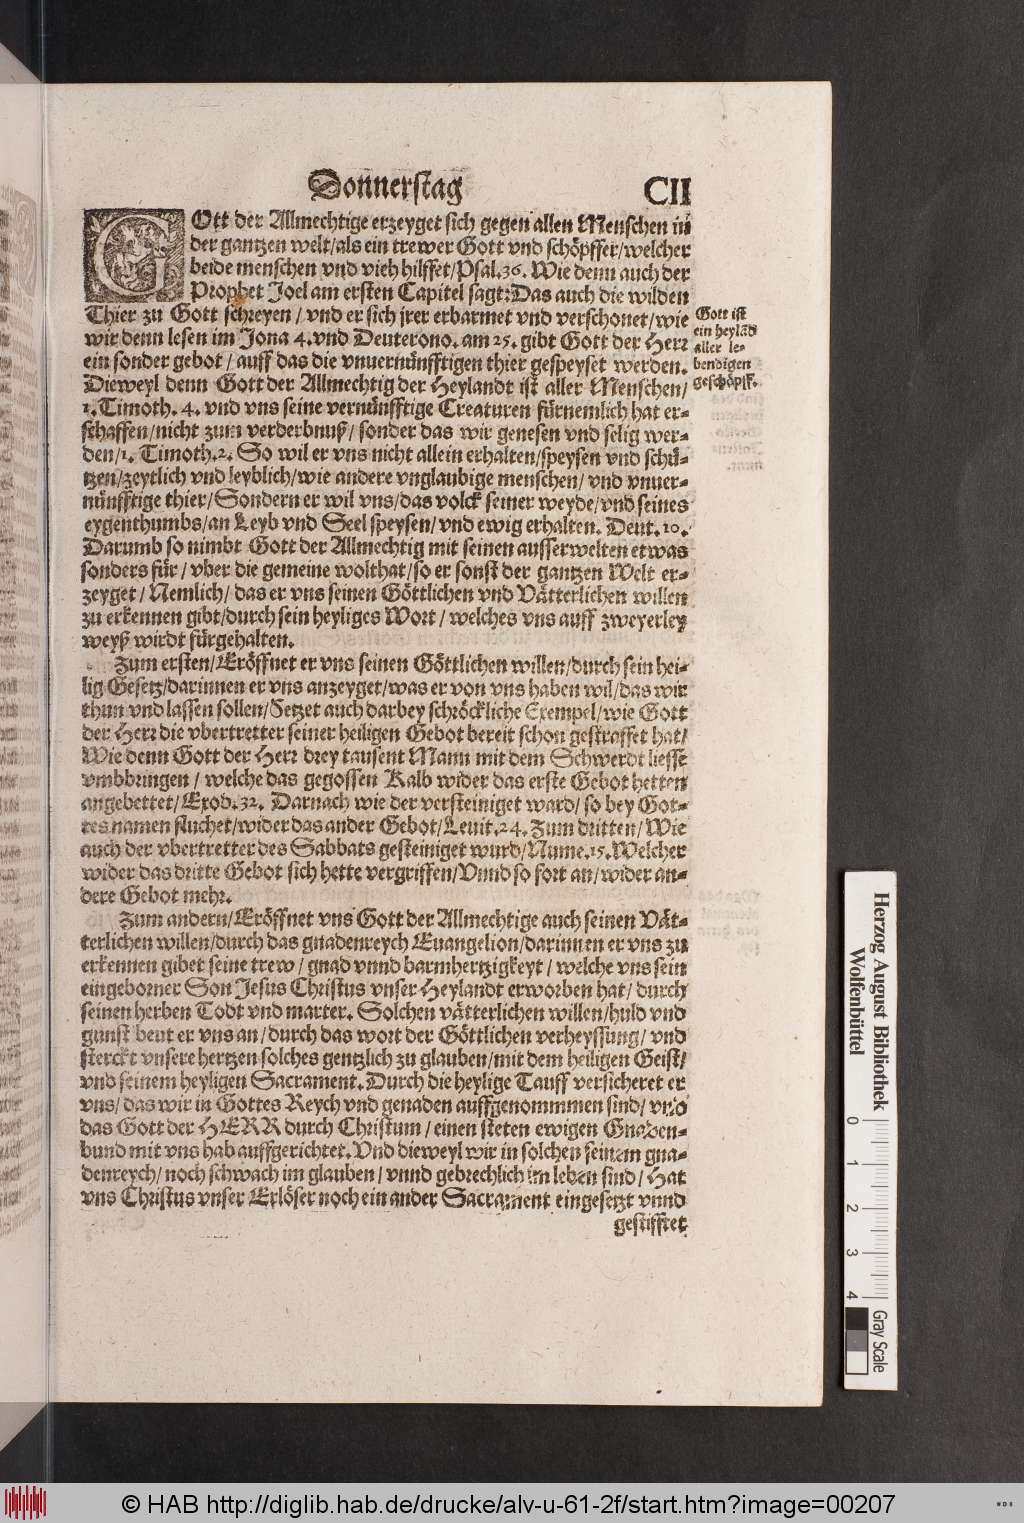 Donnerstag CII
GOtt der Allmechtige erzeyget sich gegen allen Menschen in
der gantzen welt/als ein trewer Gott vnd schöpffer/welcher
beide menschen vnd vieh hilffet/Psal.36. Wie denn auch der
Prophet Joel am ersten Capitel sagt:Das auch die wilden
Thier zu Gott schreyen/vnd er sich jrer erbarmet vnd verschonet/wie
wir denn lesen im Jona 4.vnd Deuterono. am 25. gibt Gott der Herr
ein sonder gebot/auff das die vnuernünfftigen thier gespeyset werden.
Dieweyl denn Gott der Allmechtig der Heylandt ist aller Menschen/
1.Timoth. 4. vnd vns seine vernünfftige Creaturen fürnemlich hat er-
schaffen/nicht zum verderbnuß/sonder das wir genesen vnd selig wer-
den/1. Timoth.2. So wil er vns nicht allein erhalten/speysen vnd schü-
tzen/zeytlich vnd leyblich/wie andere vnglaubige menschen/vnd vnuer-
nünfftige thier/Sondern er wil vns/das volck seiner weyde/vnd seines
eygenthumbs/an Leyb vnd Seel speysen/vnd ewig erhalten. Deut.10.
Darumb so nimbt Gott der Allmechtig mit seinen ausserwelten etwas
sonders für/vber die gemeine wolthat/so er sonst der gantzen Welt er-
zeyget/Nemlich/das er vns seinen Göttlichen vnd Vätterlichen willen
zu erkennen gibt/durch sein heyliges Wort/welches vns auff zweyerley
weyß wirdt fürgehalten.
Zum ersten/Eröffnet er vns seinen Göttlichen willen/durch sein hei-
lig Gesetz/darinnen er vns anzeyget/was er von vns haben wil/das wir
thun vnd lassen sollen/Setzet auch darbey schröckliche Exempel/wie Gott
der Herr die vbertretter seiner heiligen Gebot bereit schon gestraffet hat/
Wie denn Gott der Herr drey tausent Mann mit dem Schwerdt liesse
vmbbringen/welche das gegossen Kalb wider das erste Gebot hetten
angebettet/Exod.32. Darnach wie der versteiniget ward/so bey Got-
tes namen fluchet/wider das ander Gebot/Leuit.24. Zum dritten/Wie
auch der vbertretter des Sabbats gesteiniget wurd/Nume.15.Welcher
wider das dritte Gebot sich hette vergriffen/Vnnd so fort an/wider an-
dere Gebot mehr.
Zum andern/Eröffnet vns Gott der Allmechtige auch seinen Vät-
terlichen willen/durch das gnadenreych Euangelion/darinnen er vns zu
erkennen gibet seine trew/gnad vnnd barmhertzigkeyt/welche vns sein
eingeborner Son Jesus Christus vnser Heylandt erworben hat/durch
seinen herben Todt vnd marter. Solchen vätterlichen willen/huld vnd
gunst beut er vns an/durch das wort der Göttlichen verheyssung/vnd
sterckt vnsere hertzen solches gentzlich zu glauben/mit dem heiligen Geist/
vnd seinem heyligen Sacrament.Durch die heylige Tauff versicheret er
vns/das wir in Gottes Reych vnd genaden auffgenommen sind/vnd
das Gott der HERR durch Christum/einen steten ewigen Gnaden-
bund mit vns hab auffgerichtet.Vnd dieweyl wir in solchen seinem gna-
denreych/noch schwach im glauben/vnnd gebrechlich im leben sind/Hat
vns Christus vnser Erlöser noch ein ander Sacrament eingesetzt vnnd
gestifftet
Gott ist
ein heylãd
aller le-
bendigen
geschöpff.
Herzog August Bibliothek
Wolfenbüttel
0 1 2 3 4
Gray Scale
© HAB http://diglib.hab.de/drucke/alv-u-61-2f/start.htm?image=00207
WDB